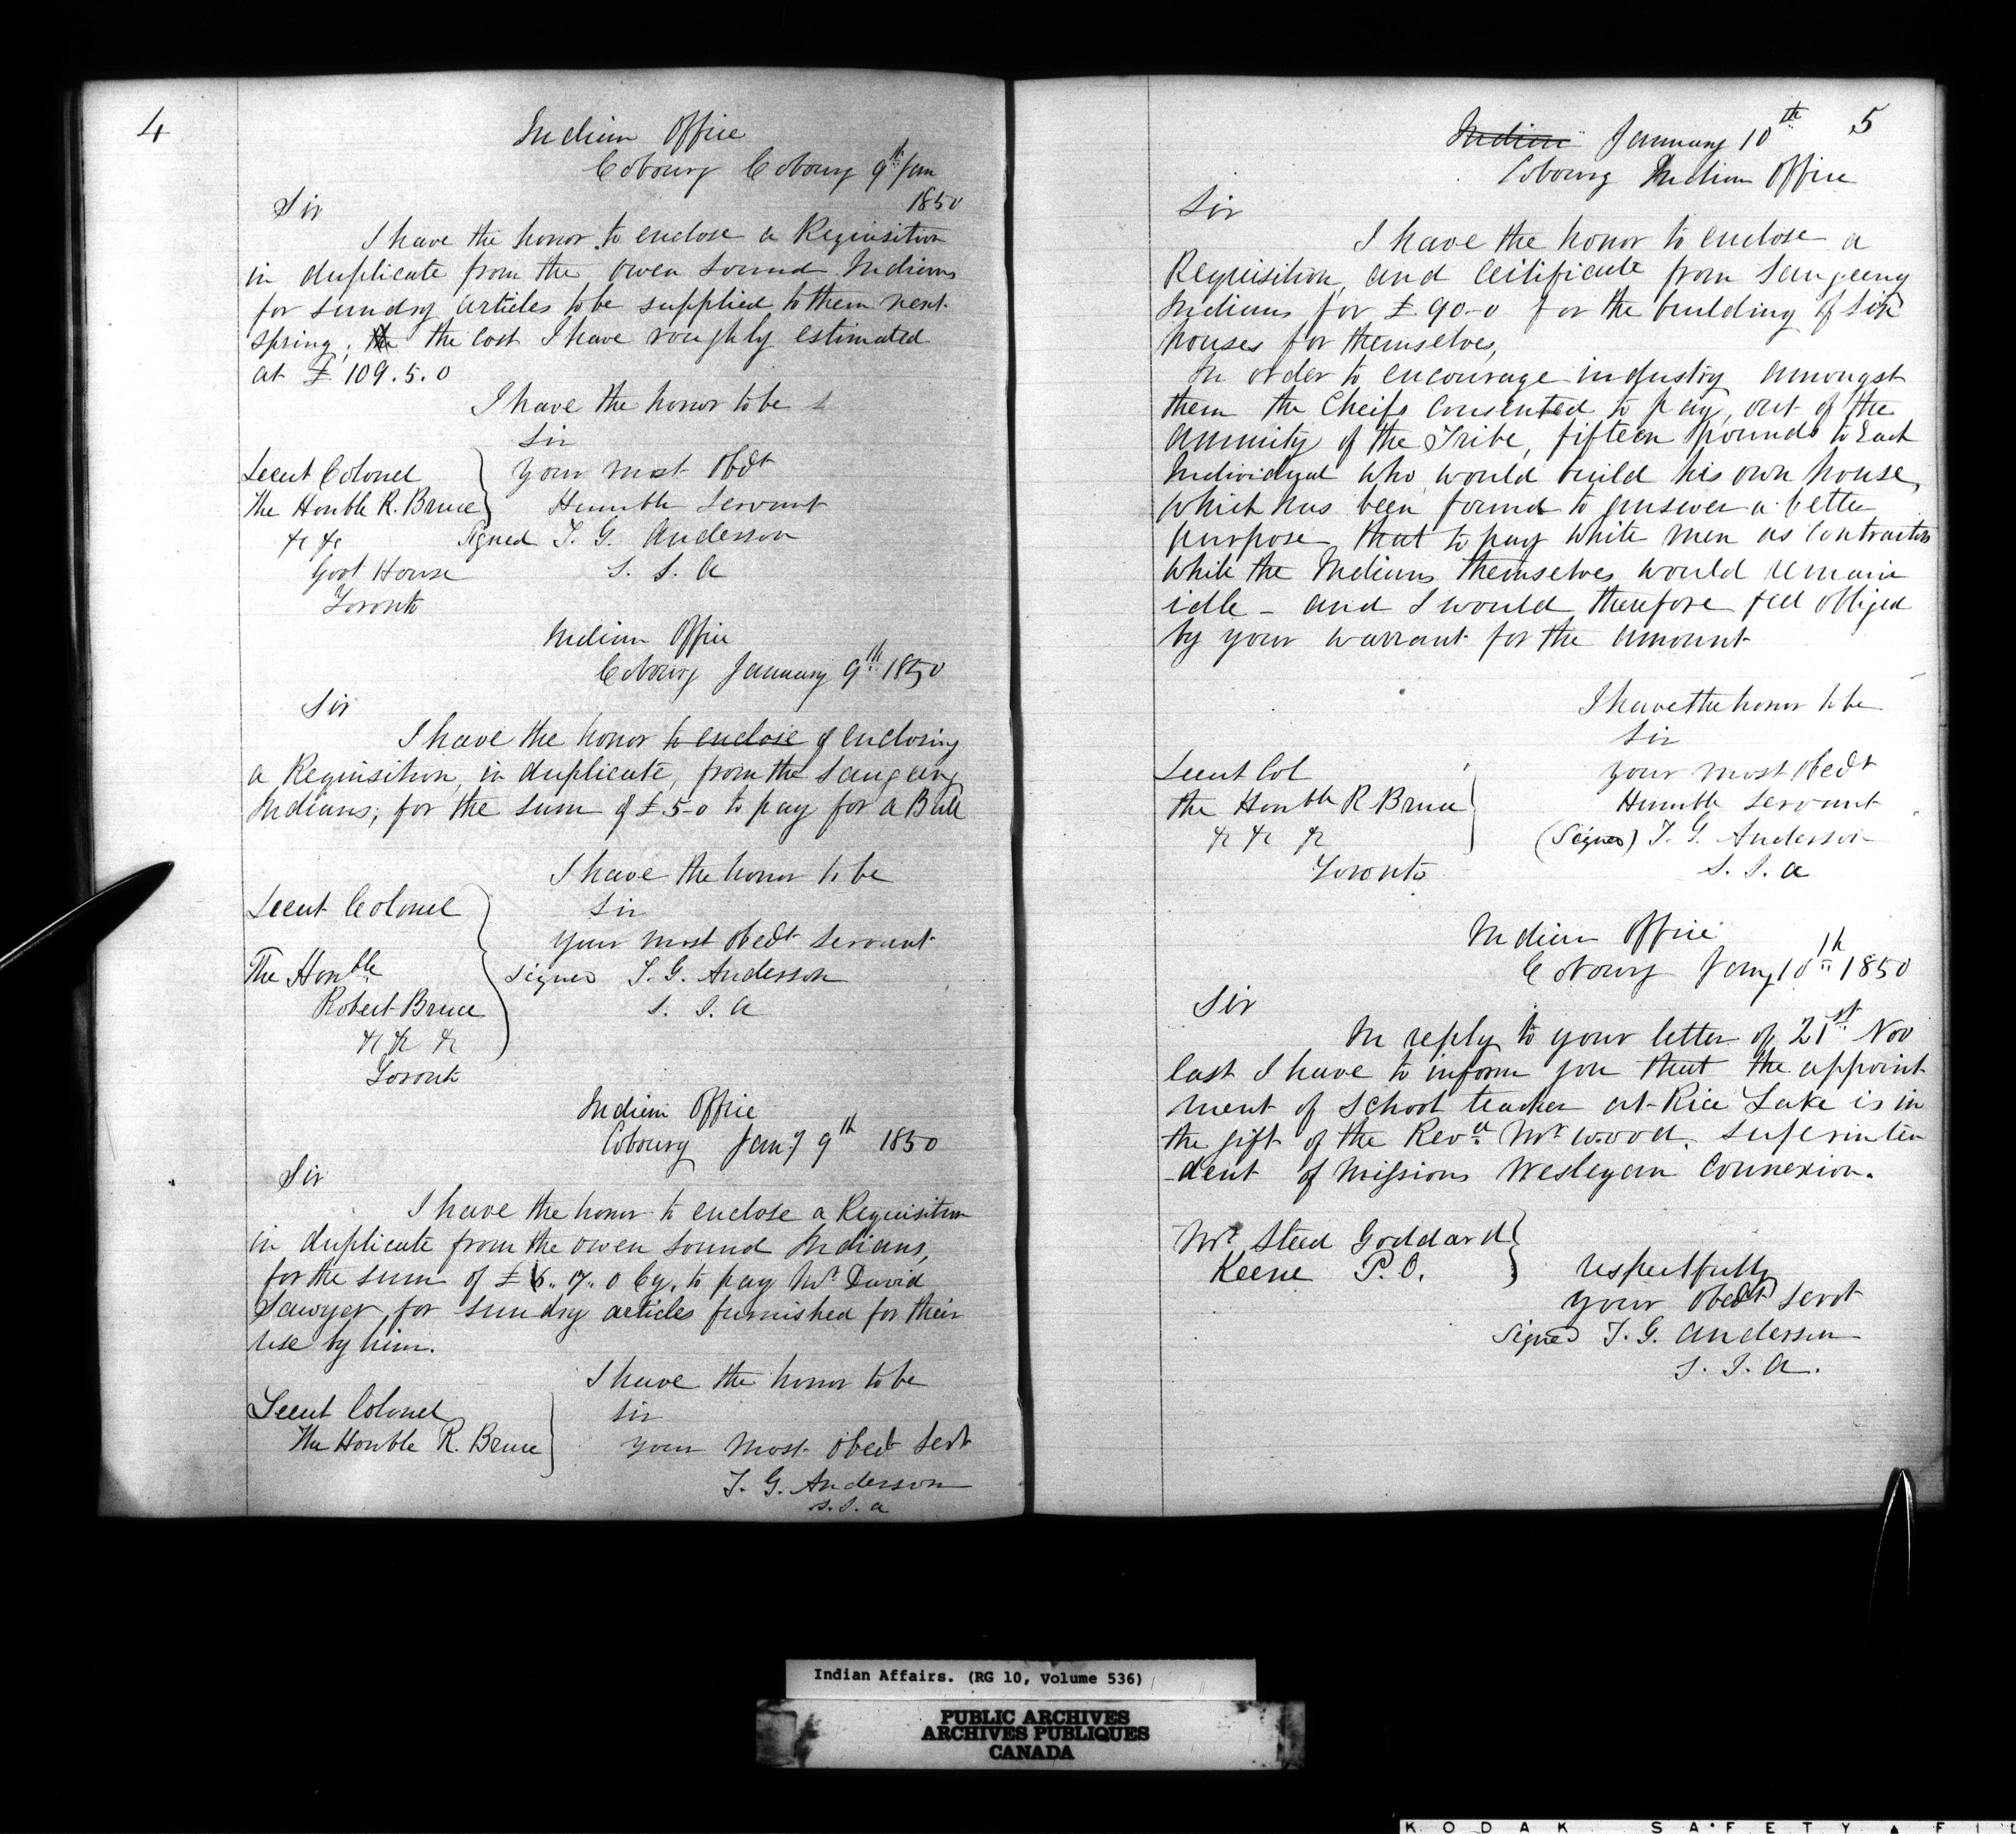 4
Indian Office
Cobourg Cobourg 9th Jan
1850
Sir
I have the honor to enclose a Requisition
in duplicate from the Owen Sound Indians
for sundry articles to be supplied to them next
spring, the the cost I have roughly estimated
at £ 109.5.0
I have the honor to be
Sir
Lieut Colonel
your most Obdt
The Honble R. Bruce
Humble Servant
&c &c
Signed T. G. Anderson
Govt House
S. I. A
Toronto
Indian Office
Cobourg January 9th 1850
Sir
I have the honor to enclose of enclosing
a Requisition, in duplicate, from the Saugeeng
Indians, for the sum of £5-0 to pay for a Bull
I have the honor to be
Lieut Colonel
Sir
your most obedt Servant
The Honble
Signed T. G. Anderson
Robert Bruce
S. I. A
&c &c &c
Toronto
Indian Office
Cobourg Jany 9th 1850
Sir
I have the honor to enclose a Requisition
in duplicate from the Owen Sound Indians,
for the sum of £ 6.. 17.. 0 Cy. to pay Mr David
Sawyer, for sundry articles furnished for their
use by him.
I have the honor to be
Lieut Colonel
Sir
The Honble R. Bruce
your most obedt Servt
T. G. Anderson
S. I. A
5
Indian January 10th
Cobourg Indian Office
Sir
I have the honor to enclose a
Requisition, and Certificate from Saugeeng
Indians for £ 90-0 for the building of six
houses for themselves,
In order to encourage industry amongst
them the Cheifs consented to pay, out of the
annuity of the Tribe, fifteen pounds to Each
Individual who would build his own house,
which has been found to answer a better
purpose that to pay white men as contractors
while the Indians themselves would remain
idle - and I would therefore feel obliged
by your warrant for the amount
I have the honor to be
Sir
Lieut Col
your most obedt
The Honble R Bruce
Humble servant
&c &c &c
(Signed) T. G. Anderson
Toronto
S. I. A
Indian Office
Cobourg Jany 10th 1850
Sir
In reply to your letter of 21st Nov
last I have to inform you that the appoint
ment of School teacher at Rice Lake is in
the gift of the Revd Mr Wood. superinten
-dent of Missions Wesleyan Connexion.
Mr Steed Goddard
Keene P.O.
respectfully
your obedt servt
Signed T. G. Anderson
S. I. A.
Indian Affairs. (RG 10, Volume 536)
PUBLIC ARCHIVES
ARCHIVES PUBLIQUES
CANADA
KODAK SAFETY FI